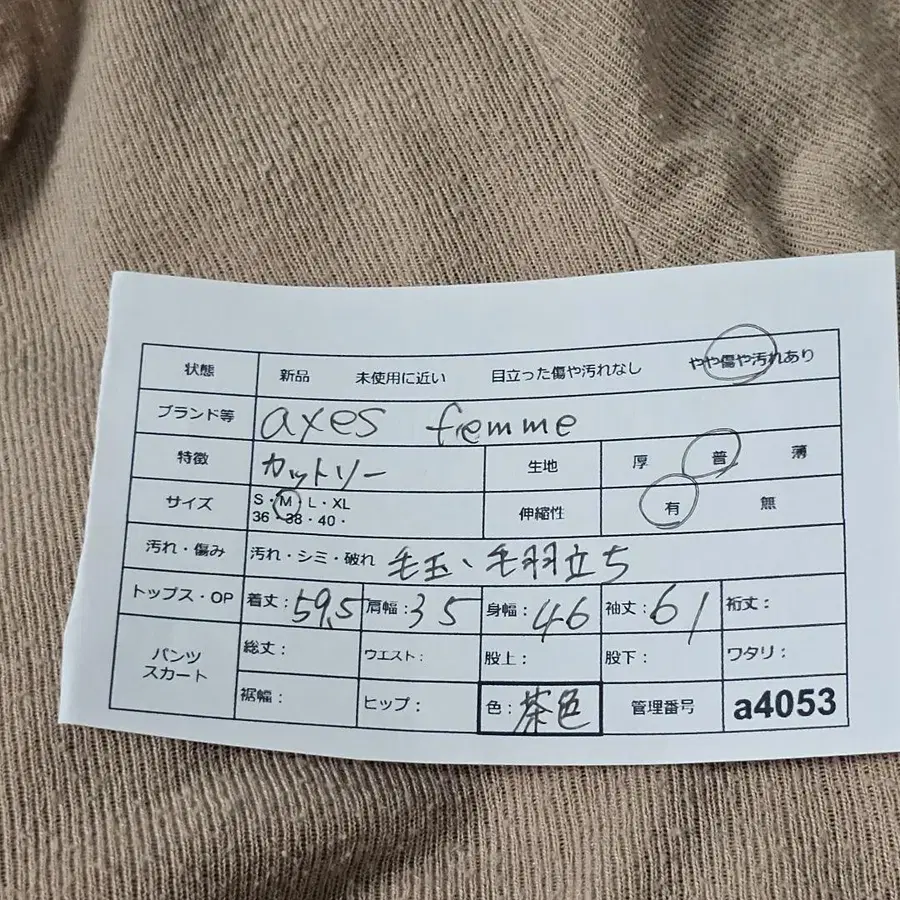 状態 新品 未使用に近い 目立った傷や汚れなし やや傷や汚れあり
ブランド等 axes femme
特徴 カットソー 生地 厚 普 薄
サイズ S・M・L・XL 伸縮性 有 無
36・38・40・
汚れ・傷み 汚れ・シミ・破れ 毛玉、毛羽立ち
トップス・OP 着丈：59.5 肩幅：35 身幅：46 袖丈：61 裄丈：
パンツ スカート 総丈： ウエスト： 股上： 股下： ワタリ：
裾幅： ヒップ： 色：茶色 管理番号 a4053